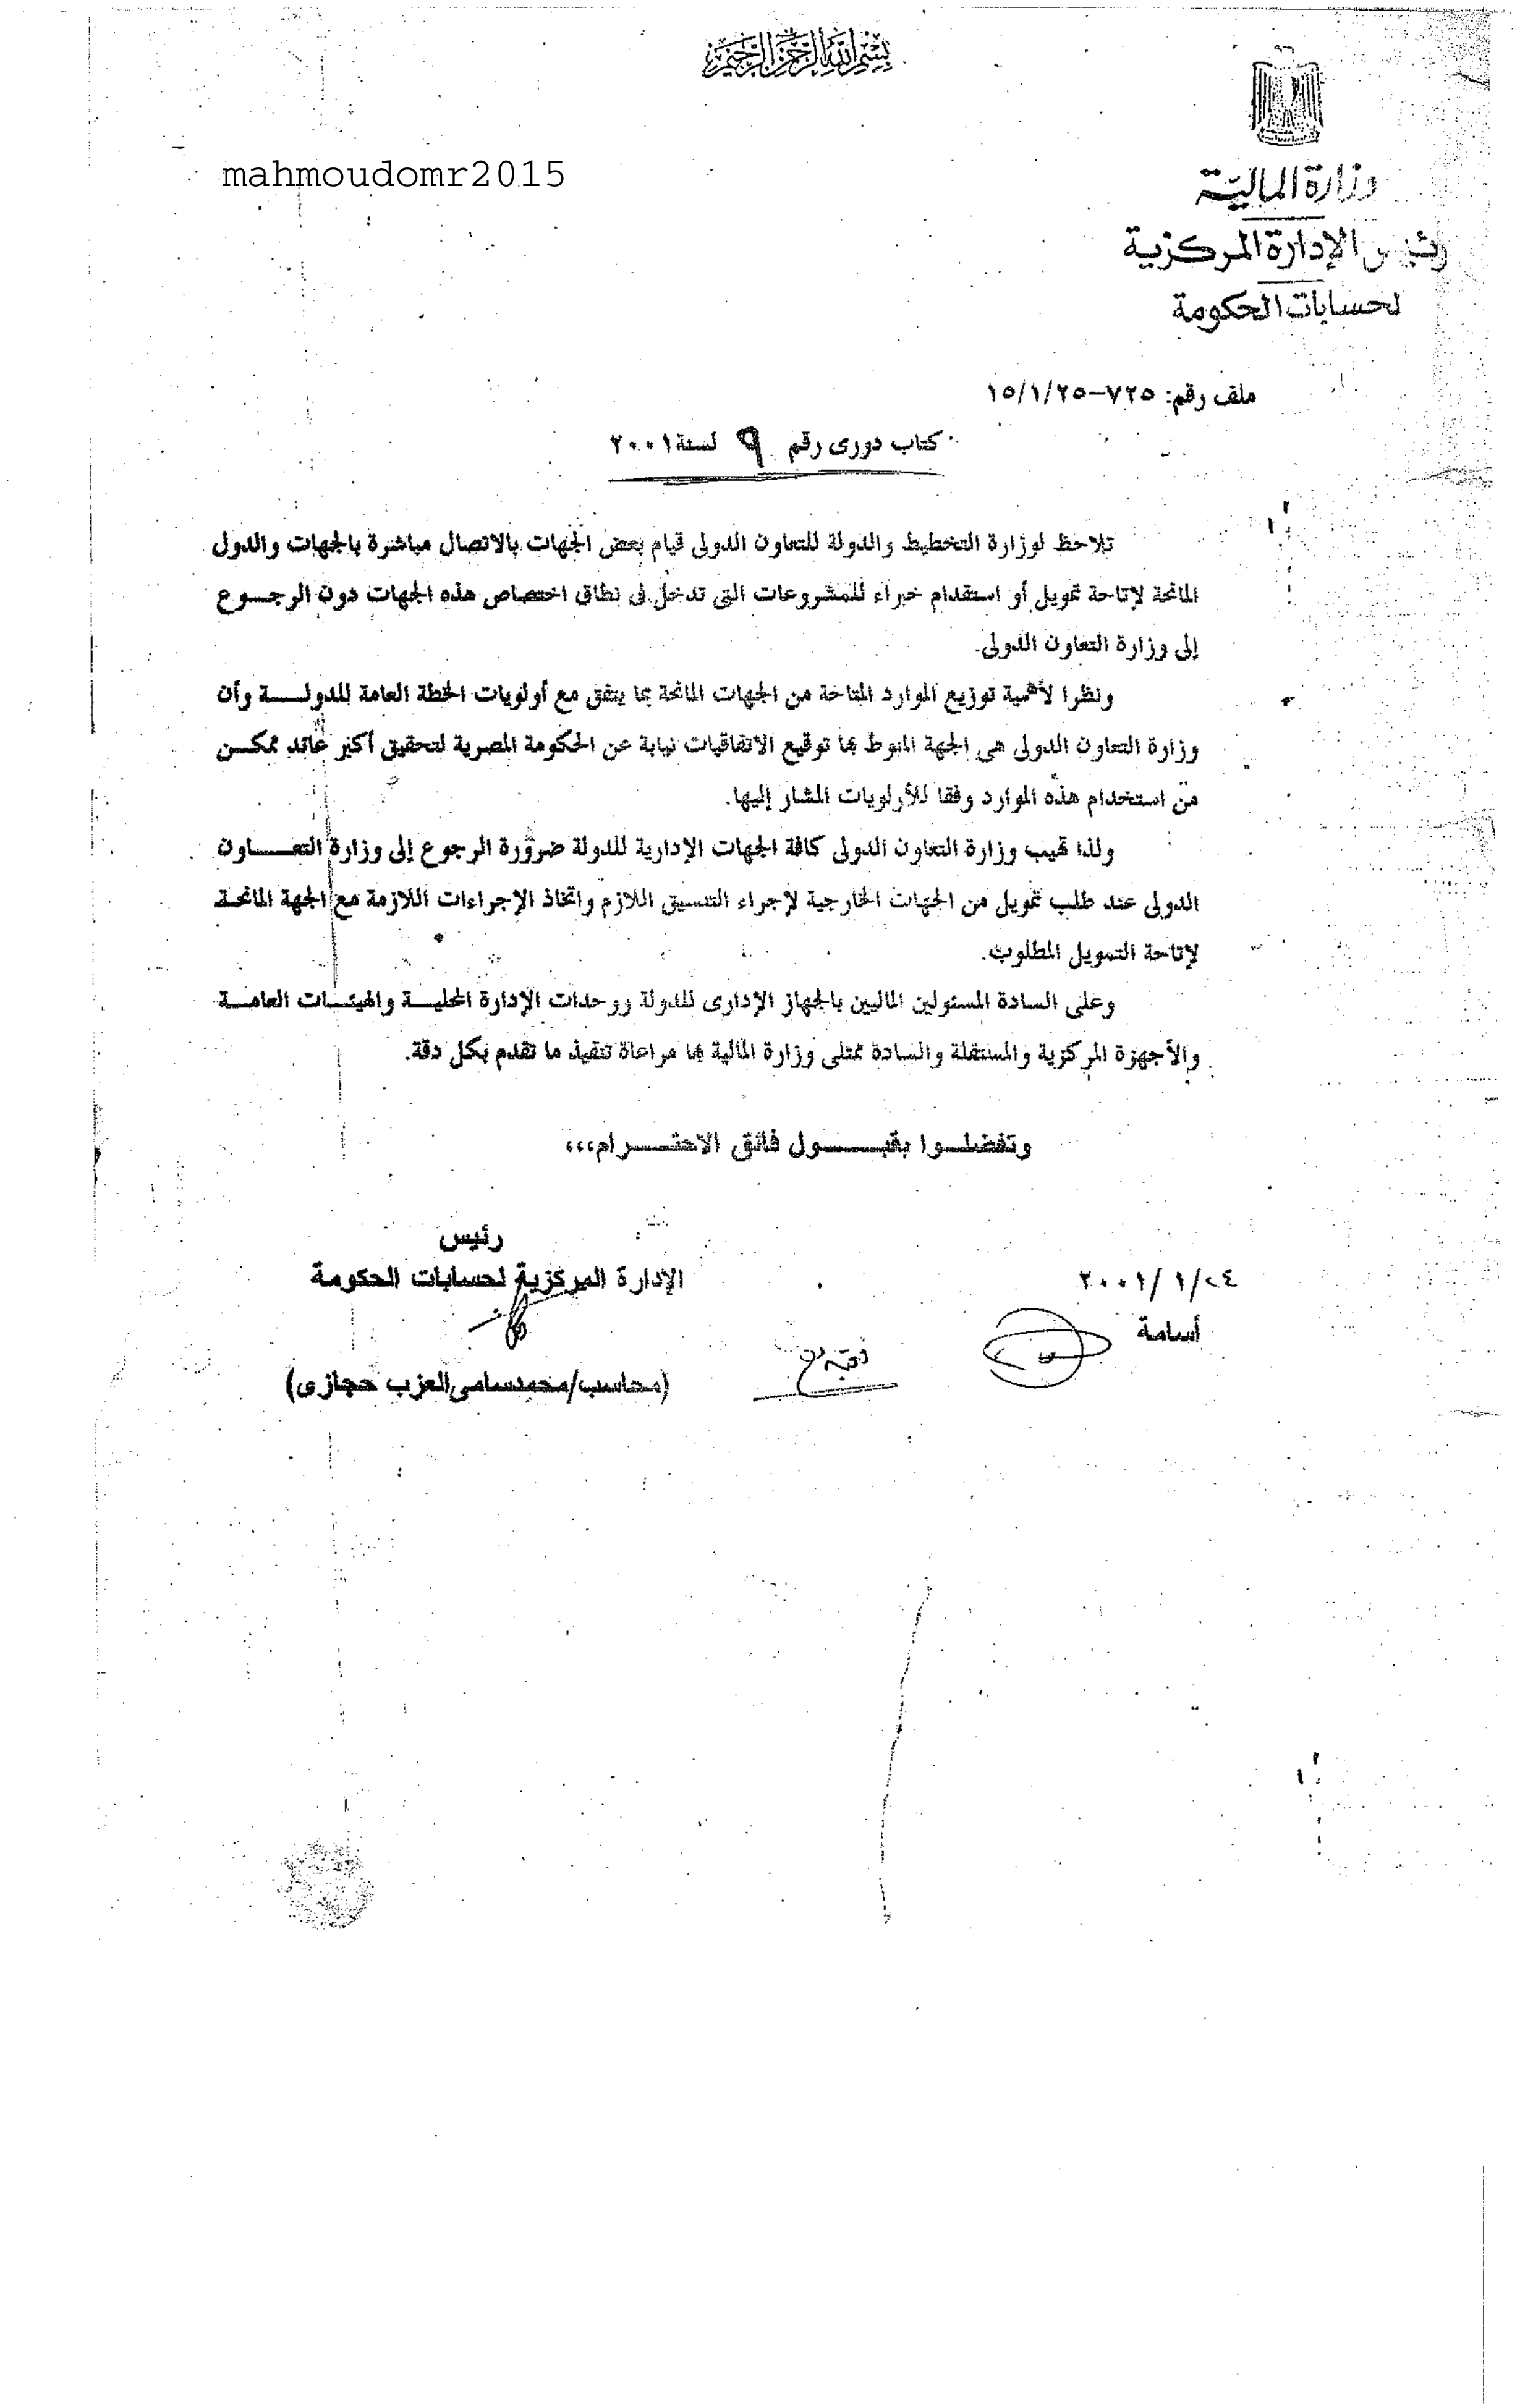 بسم الله الرحمن الرحيم
mahmoudomr2015
وزارة المالية
رئيس الإدارة المركزية
لحسابات الحكومة
ملف رقم: ٧٢٥-١٥/١/٢٥
كتاب دورى رقم ٩ لسنة ٢٠٠١
تلاحظ لوزارة التخطيط والدولة للتعاون الدولى قيام بعض الجهات بالاتصال مباشرة بالجهات والدول
المانحة لإتاحة تمويل أو استقدام خبراء للمشروعات التى تدخل فى نطاق اختصاص هذه الجهات دون الرجـــوع
إلى وزارة التعاون الدولى.
ونظرا لأهمية توزيع الموارد المتاحة من الجهات المانحة بما يتفق مع أولويات الخطة العامة للدولـــــة وأن
وزارة التعاون الدولى هى الجهة المنوط بها توقيع الاتفاقيات نيابة عن الحكومة المصرية لتحقيق أكبر عائد ممكـــن
من استخدام هذه الموارد وفقا للأولويات المشار إليها.
ولذا تهيب وزارة التعاون الدولى كافة الجهات الإدارية للدولة ضرورة الرجوع إلى وزارة التعـــــاون
الدولى عند طلب تمويل من الجهات الخارجية لإجراء التنسيق اللازم واتخاذ الإجراءات اللازمة مع الجهة المانحـة
لإتاحة التمويل المطلوب.
وعلى السادة المسئولين الماليين بالجهاز الإدارى للدولة ووحدات الإدارة المحليـــة والهيئـــات العامـــة
والأجهزة المركزية والمستقلة والسادة ممثلى وزارة المالية بها مراعاة تنفيذ ما تقدم بكل دقة.
وتفضلـــوا بقبـــــول فائق الاحتـــــرام،،،
رئيس
الإدارة المركزية لحسابات الحكومة
(محاسب/محمدسامى العزب حجازى)
٢٤/ ١ /٢٠٠١
أسامة